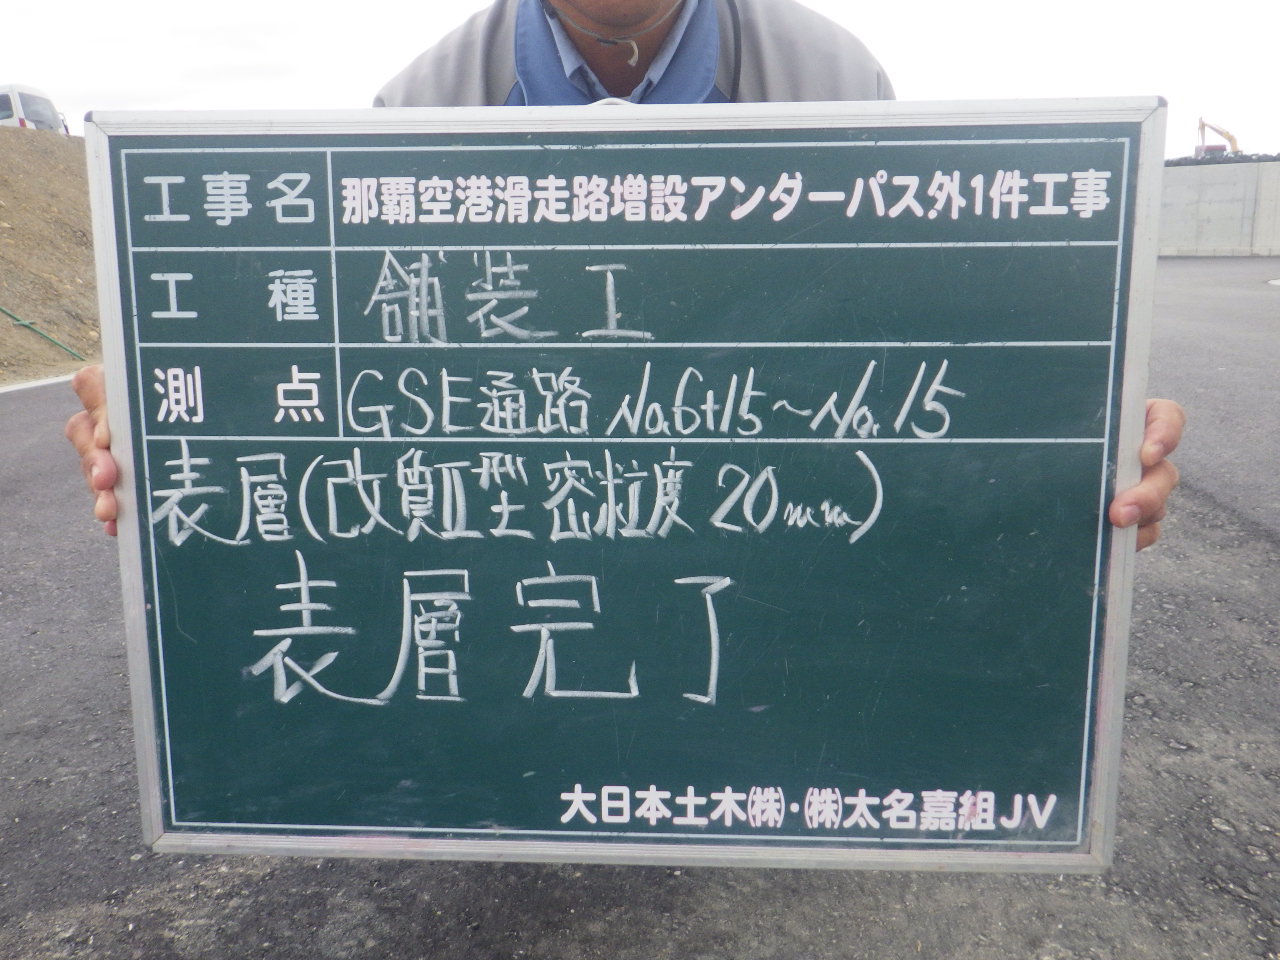 工事名 那覇空港滑走路増設アンダーパス外1件工事
工種 舗装工
測点 GSE通路 No.6+15～No.15
表層(改質Ⅱ型 密粒度 20mm)
表層完了
大日本土木㈱・㈱太名嘉組JV